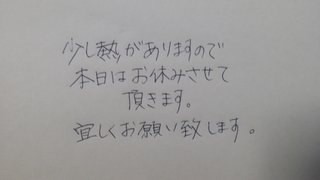 少し熱がありますので
本日はお休みさせて
頂きます。
宜しくお願い致します。